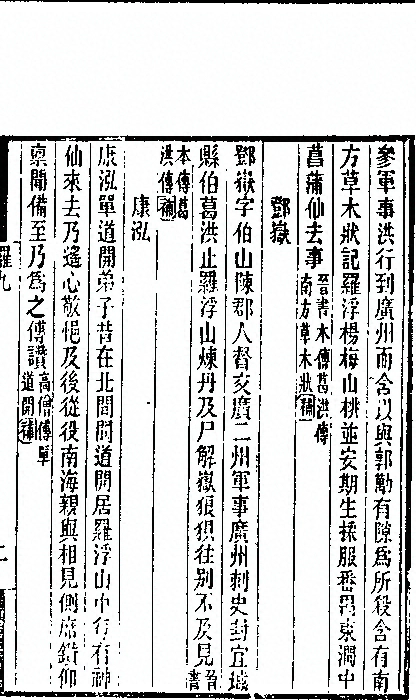 參軍事洪行到廣州而含以與郭勱有隙爲所殺含有南
方草木狀記羅浮楊梅山桃並安期生採服番禺東澗中
菖蒲仙去事晉書本傳葛洪傳南方草木狀補
鄧嶽
鄧嶽字伯山陳郡人督交廣二州軍事廣州刺史封宜城
縣伯葛洪止羅浮山煉丹及尸解嶽狼狽往别不及見晉書
本傳葛洪傳補
康泓
康泓單道開弟子昔在北間聞道開居羅浮山中行有神
仙來去乃遙心敬悒及後從役南海親與相見側席鑽仰
稟聞備至乃爲之傳讚高僧傳單道開補
羅九